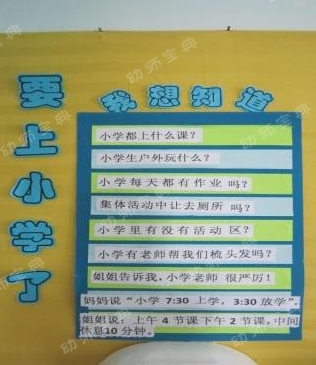 要上小学了
我想知道
小学都上什么课?
小学生户外玩什么?
小学每天都有作业吗?
集体活动中让去厕所吗?
小学里有没有活动区?
小学有老师帮我们梳头发吗?
姐姐告诉我,小学老师很严厉!
妈妈说“小学 7:30 上学, 3:30 放学”。
姐姐说:上午 4 节课下午 2 节课,中间
休息10 分钟。
幼师宝典
幼师宝典
幼师宝典
幼师宝典
幼师宝典